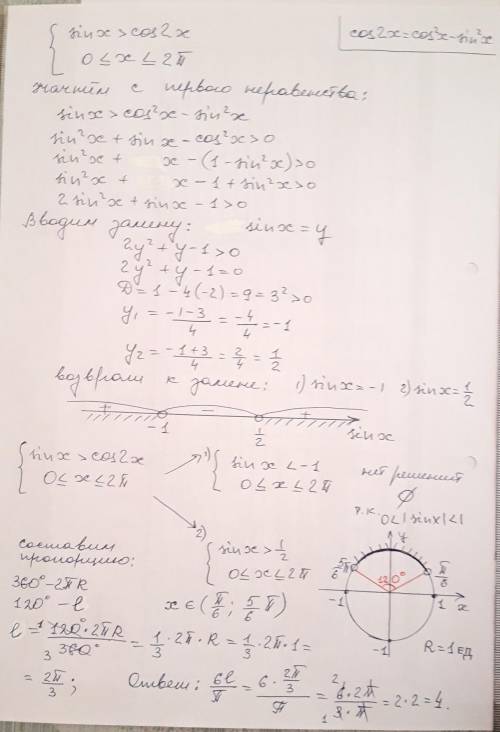 { sinx > cos2x
0 ≤ x ≤ 2π
cos2x = cos²x - sin²x
начнём с первого неравенства:
sinx > cos²x - sin²x
sin²x + sinx - cos²x > 0
sin²x + x - (1 - sin²x) > 0
sin²x + x - 1 + sin²x > 0
2sin²x + sinx - 1 > 0
Вводим замену: sinx = y
2y² + y - 1 > 0
2y² + y - 1 = 0
D = 1 - 4(-2) = 9 = 3² > 0
y₁ = (-1-3)/4 = -4/4 = -1
y₂ = (-1+3)/4 = 2/4 = 1/2
возврат к замене: 1) sinx = -1 2) sinx = 1/2
+ - +
-1 1/2 sinx
{ sinx > cos2x
0 ≤ x ≤ 2π
1) { sinx < -1
0 ≤ x ≤ 2π
нет решений
∅
т.к. 0<|sinx|<1
2) { sinx > 1/2
0 ≤ x ≤ 2π
x ∈ (π/6; 5/6 π)
y
5/6 π 120° π/6
-1 1 x
-1
R = 1 ед
составим
пропорцию:
360° - 2πR
120° - l
l = 120°·2πR/360° = 1/3 · 2π · R = 1/3 · 2π · 1 =
= 2π/3;
Ответ: 6l/π = (6 · 2π/3)/π = 6·2π/3·π = 2·2 = 4.